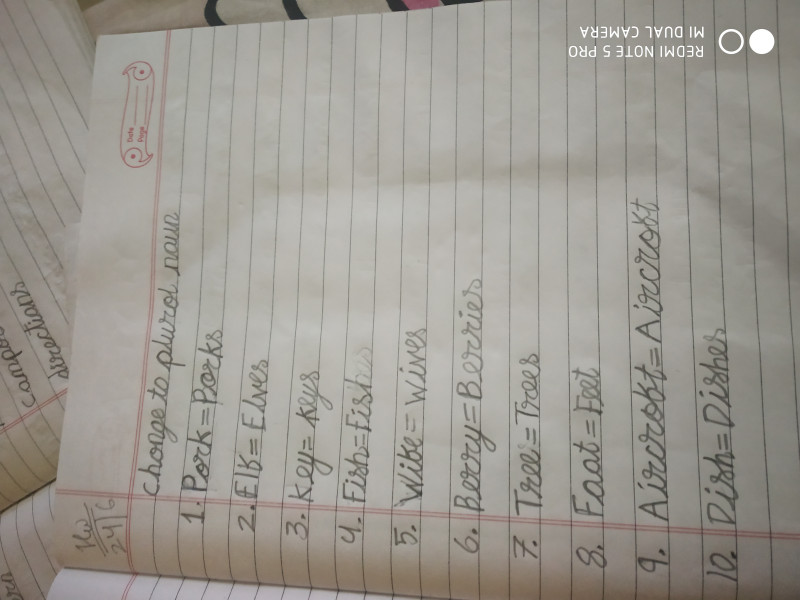 HW
24/6
Date
Page
Change to plural noun
1. Park=Parks
2. Elf=Elves
3. Key=Keys
4. Fish=Fish
5. Wife=Wives
6. Berry=Berries
7. Tree=Trees
8. Foot=Feet
9. Aircroft=Aircroft
10. Dish=Dishes
directions
REDMI NOTE 5 PRO
MI DUAL CAMERA